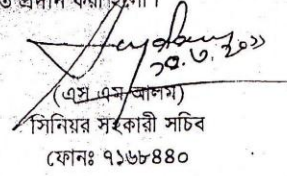 ও প্রদান করা হলো।
(এস এম আলম)
সিনিয়র সহকারী সচিব
ফোনঃ ৭১৬৮৪৪০